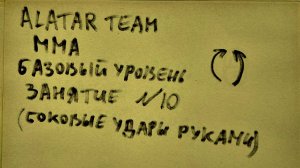 ALATAR TEAM
MMA
БАЗОВЫЙ УРОВЕНЬ
ЗАНЯТИЕ №10
(БОКОВЫЕ УДАРЫ РУКАМИ)